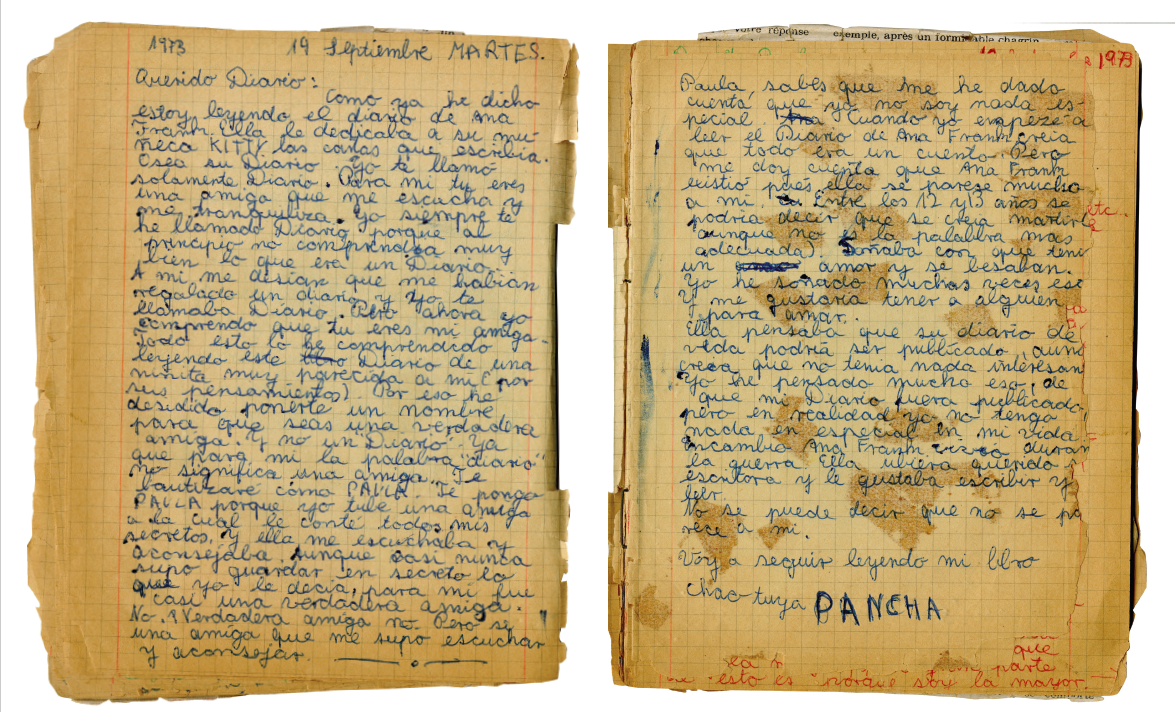 1973 19 Septiembre MARTES.
Querido Diario:
Como ya he dicho
estoy leyendo el diario de Ana
Frank. Ella le dedicaba a su mu-
ñeca KITTY las cartas que escribia.
Osea su Diario. Yo te llamo
solamente Diario. Para mi tu eres
una amiga que me escucha y
me tranquiliza. Yo siempre te
he llamado Diario porque al
principio no comprendia muy
bien lo que era un Diario.
A mi me desian que me habian
regalado un diario y yo te
llamaba Diario. Pero ahora yo
comprendo que tu eres mi amiga.
Todo esto lo he comprendido
leyendo este Diario de una
niñita muy parecida a mi (por
sus pensamientos). Por eso he
desidido ponerte un nombre
para que seas una verdadera
amiga y no un "Diario". Ya
que para mi la palabra "diario"
no significa una amiga. Te
bautizaré como PAULA. Te pongo
PAULA porque yo tube una amiga
a la cual le conté todos mis
secretos. Y ella me escuchaba y
aconsejaba, aunque casi nunca
supo guardar en secreto lo
que yo le decia, para mi fue
casi una verdadera amiga.
No. ¿Verdadera amiga no. Pero si
una amiga que me supo escuchar
y aconsejar.
votre réponse exemple, après un formidable chagrin
1973
Paula, sabes que me he dado
cuenta que yo no soy nada es-
pecial. Cuando yo empezé a
leer el Diario de Ana Frank creia
que todo era un cuento. Pero
me doy cuenta que Ana Frank
existió pues ella se parese mucho
a mi. Entre los 12 y 13 años se
podria decir que se creia martir
(aunque no es la palabra mas
adecuada). Soñaba con que teni
un amor y se besaban.
Yo he soñado muchas veces eso
Y me gustaria tener a alguien
para amar.
Ella pensaba que su diario de
vida podria ser publicado, aun
creia que no tenia nada interesan
Yo he pensado mucho eso, de
que mi Diario fuera publicado,
pero en realidad yo no tengo
nada en especial en mi vida.
Encambio Ana Frank vivio duran
la guerra. Ella ubiera querido
escritora y le gustaba escribir y
leer.
No se puede decir que no se pa
rece a mi.
Voy a seguir leyendo mi libro
chao-tuya PANCHA
etc..
que
parte
esto es "porque" soy la mayor.